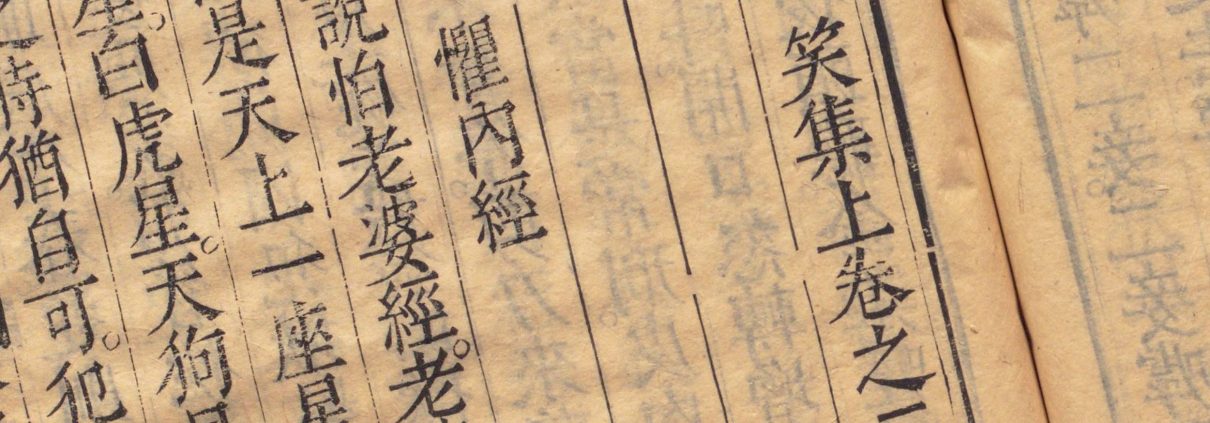 笑集上卷之
懼內經
說怕老婆經。老
是天上一座星
星。白虎星。天狗
時猶自可。犯